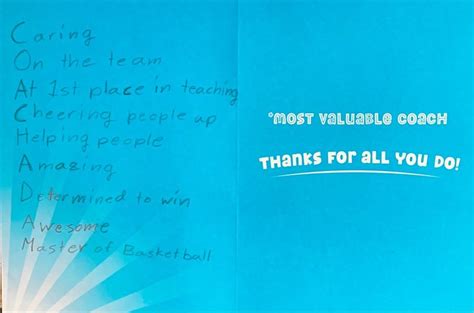 Caring
On the team
At 1st place in teaching
Cheering people up
Helping people
Amazing
Determined to win
Awesome
Master of Basketball
*MOST VALUABLE COACH
THANKS FOR ALL YOU DO!